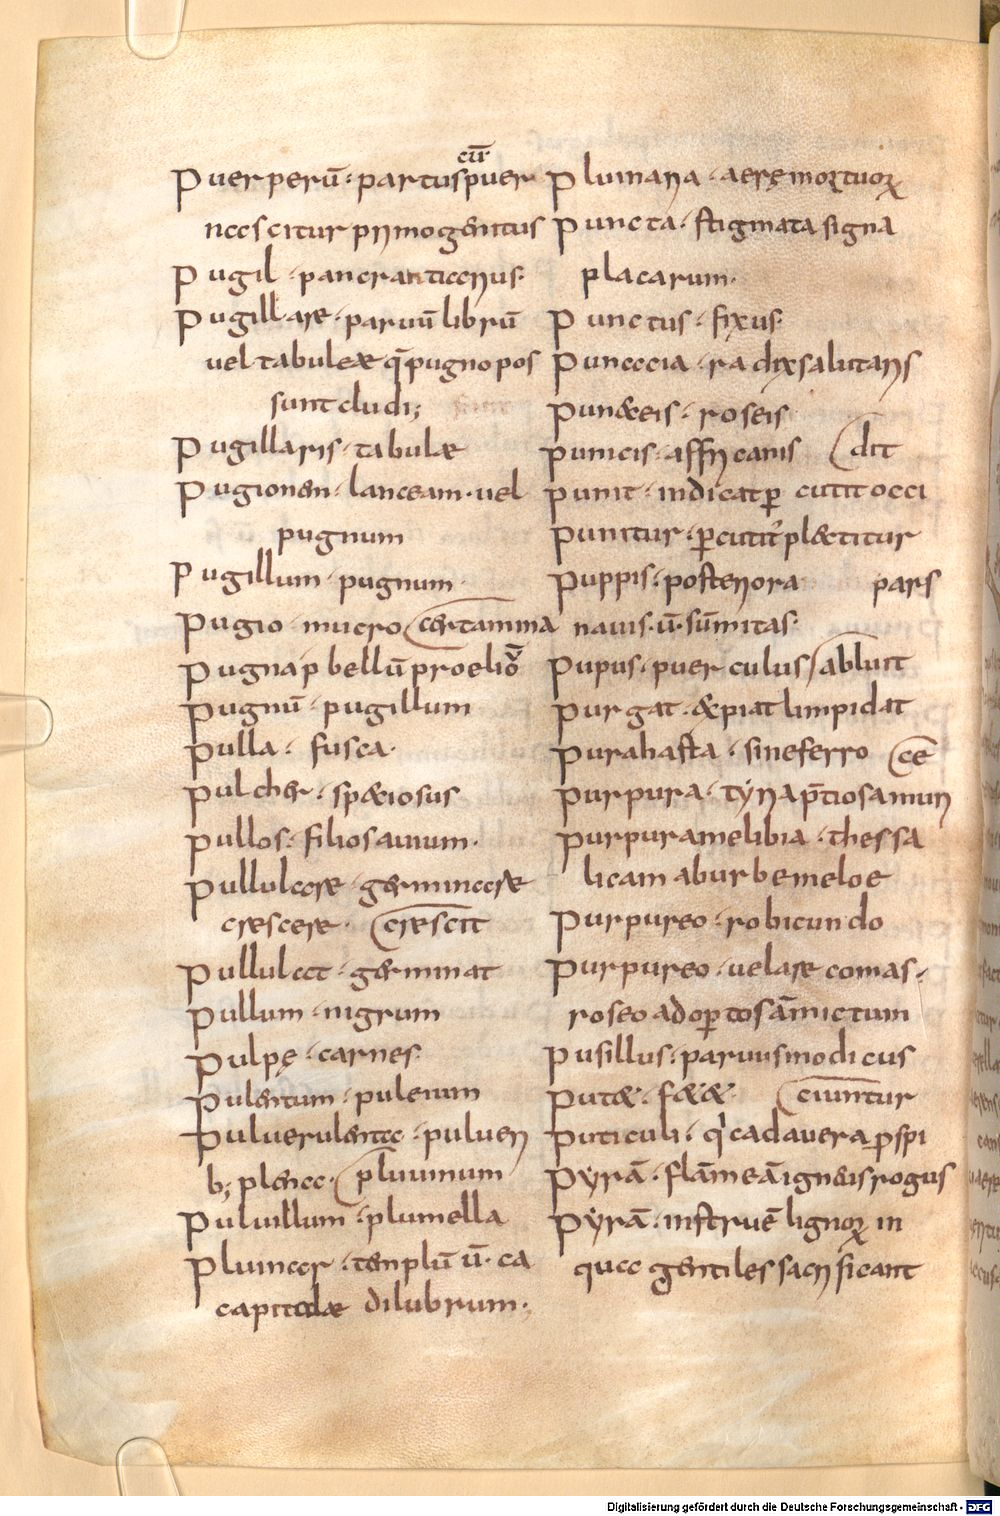 cū·
Puerperū· partus puer
nascitur primogenitus
Pugil · pancranticarius·
Pugillare · paruū librū
uel tabulae q̄ pugno pos
sunt cludi;
Pugillaris · tabulae
Pugionem · lanceam · uel
pugnum
Pugillum · pugnum ·
Pugio · mucro (certamina
Pugna p bellū proelio
Pugnū · pugillum
Pulla · fusca·
Pulcher · speciosus
Pullos · filios auium·
Pullulare · germinare
crescere · (crescit
Pullulat · germinat
Pullum · nigrum
Pulpę · carnes·
Pulentum · puleium
Puluerulenta · pulueri
b; plena · (pluuinum
Puluillum · plumella
Pluincer · templū ū· ca
capitolae dilubrum·
Plumaria · aerę mortuorꝝ
Puncta · stigmata signa
placarum·
Punctus · fixus·
Punccia · radix salutaris
Puniceis · roseis
Punicis · affricanis (dit
Punit · indicat ꝑcutit occi
Punitur · ꝑcutit᷒ plectitur
Puppis · posteriora pars
nauis · ū· sūmitas·
Pupus · puerculus (abluit
Purgat · &piat limpidat
Pura hasta · sine ferro (ce
Purpura · tyria p̄tiosa muri
Purpura melibia · thessa
licam ab urbe meloe
Purpureo · robicundo
Purpureo · uelare comas·
roseo adoptos āmictum
Pusillus · paruus modicus
Put& · f&&· (ciuntur
Puticuli · q̇ cadauera ꝑspi
Pyrā · flāmeā igneis rogus
Pyrā · instruē lignorꝝ in
qua gentiles sacrificant
Digitalisierung gefördert durch die Deutsche Forschungsgemeinschaft - DFG